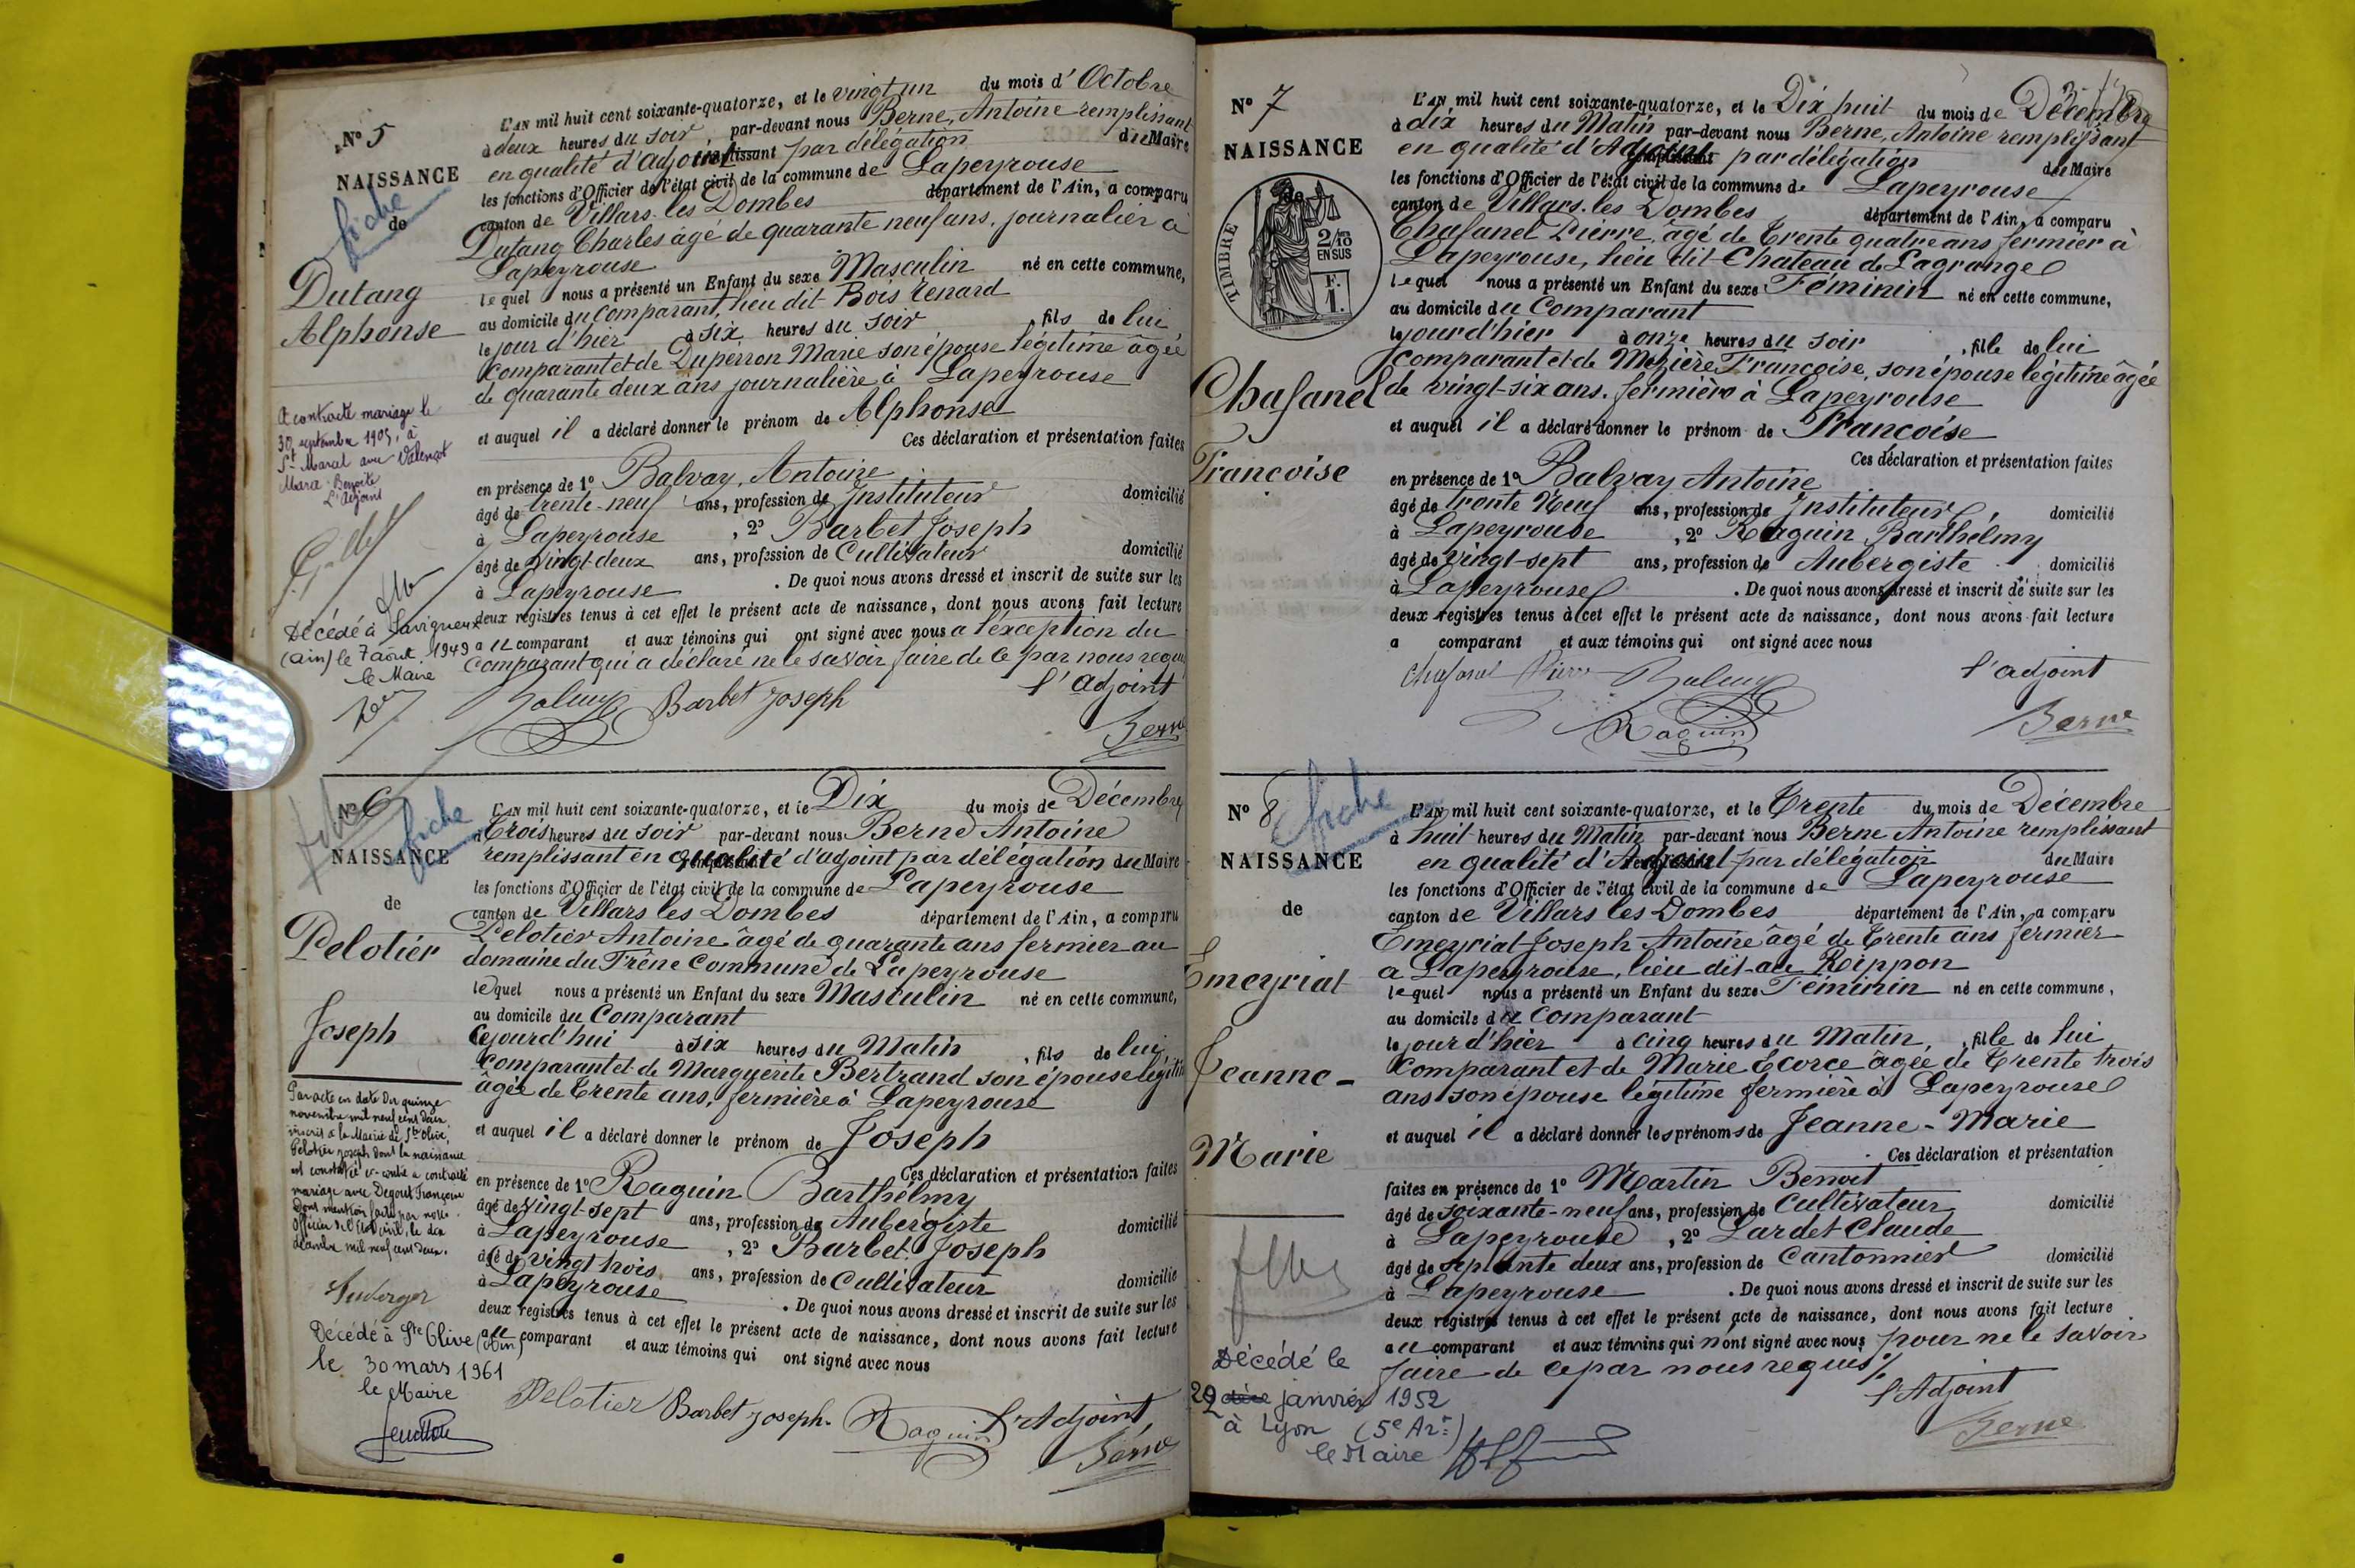 N° 5
NAISSANCE
fiche
de
Dutang
Alphonse
A contracté mariage le
30 septembre 1905, à
St Marcel avec Valençot
Marie Benoite
L'Adjoint
Décédé à Savigneux
(Ain) le 7 août 1949
le Maire
L'AN mil huit cent soixante-quatorze, et le vingt un du mois d'Octobre
à deux heures du soir par-devant nous Berne, Antoine remplissant
en qualité d'adjoint par délégation du Maire
les fonctions d'Officier de l'état civil de la commune de Lapeyrouse
canton de Villars les Dombes département de l'Ain, a comparu
Dutang Charles âgé de quarante neuf ans, journalier à
Lapeyrouse
lequel nous a présenté un Enfant du sexe Masculin né en cette commune,
au domicile du comparant, lieu dit Bois Renard
le jour d'hier à six heures du soir, fils de lui
comparant et de Duperron Marie son épouse légitime âgée
de quarante deux ans journalière à Lapeyrouse
et auquel il a déclaré donner le prénom de Alphonse
Ces déclaration et présentation faites
en présence de 1° Balvay, Antoine
âgé de trente-neuf ans, profession de Instituteur domicilié
à Lapeyrouse, 2° Barbet Joseph
âgé de vingt-deux ans, profession de Cultivateur domicilié
à Lapeyrouse. De quoi nous avons dressé et inscrit de suite sur les
deux registres tenus à cet effet le présent acte de naissance, dont nous avons fait lecture
au comparant et aux témoins qui ont signé avec nous a l'exception du
comparant qui a déclaré ne le savoir faire de ce par nous requis
l'adjoint
Balvay Barbet Joseph
Berne
N° 6
fiche
NAISSANCE
de
Pelotier
Joseph
Par acte en date du quinze
novembre mil neuf cent deux
inscrit à la Mairie de Ste Olive,
Pelotier Joseph dont la naissance
est constatée ci-contre a contracté
mariage avec Degout Françoise
Dont mention faite par nous
Officier de l'Etat civil, le dix
décembre mil neuf cent deux.
Décédé à Ste Olive (Ain)
le 30 mars 1961
le Maire
L'AN mil huit cent soixante-quatorze, et le Dix du mois de Décembre
à Trois heures du soir par-devant nous Berne Antoine
remplissant en qualité d'adjoint par délégation du Maire
les fonctions d'Officier de l'état civil de la commune de Lapeyrouse
canton de Villars les Dombes département de l'Ain, a comparu
Pelotier Antoine âgé de quarante ans fermier au
domaine du Frêne Commune de Lapeyrouse
lequel nous a présenté un Enfant du sexe Masculin né en cette commune,
au domicile du Comparant
cejourd'hui à six heures du Matin, fils de lui
comparant et de Marguerite Bertrand son épouse légitime
âgée de Trente ans, fermière à Lapeyrouse
et auquel il a déclaré donner le prénom de Joseph
Ces déclaration et présentation faites
en présence de 1° Raguin Barthélmy
âgé de vingt-sept ans, profession de Aubergiste domicilié
à Lapeyrouse, 2° Barbet Joseph
âgé de vingt trois ans, profession de Cultivateur domicilié
à Lapeyrouse. De quoi nous avons dressé et inscrit de suite sur les
deux registres tenus à cet effet le présent acte de naissance, dont nous avons fait lecture
au comparant et aux témoins qui ont signé avec nous
Pelotier Barbet Joseph. Raguin l'Adjoint
Berne
N° 7
NAISSANCE
de
TIMBRE
2/10
EN SUS
F.
1.
Chafanel
Françoise
L'AN mil huit cent soixante-quatorze, et le Dix huit du mois de Décembre
à dix heures du Matin par-devant nous Berne, Antoine remplissant
en qualité d'Adjoint par délégation du Maire
les fonctions d'Officier de l'état civil de la commune de Lapeyrouse
canton de Villars les Dombes département de l'Ain, a comparu
Chafanel Pierre, âgé de Trente quatre ans fermier à
Lapeyrouse, lieu dit Chateau de Lagrange
lequel nous a présenté un Enfant du sexe Féminin né en cette commune,
au domicile du Comparant
le jour d'hier à onze heures du soir, fille de lui
comparant et de Mezière Françoise, son épouse légitime âgée
de vingt-six ans. fermière à Lapeyrouse
et auquel il a déclaré donner le prénom de Françoise
Ces déclaration et présentation faites
en présence de 1° Balvay Antoine
âgé de trente Neuf ans, profession de Instituteur, domicilié
à Lapeyrouse, 2° Raguin Barthélmy
âgé de vingt-sept ans, profession de Aubergiste domicilié
à Lapeyrouse. De quoi nous avons dressé et inscrit de suite sur les
deux registres tenus à cet effet le présent acte de naissance, dont nous avons fait lecture
a comparant et aux témoins qui ont signé avec nous
Chafanel Pierre Balvay l'adjoint
Raguin Berne
N° 8
fiche
NAISSANCE
de
Émeyriat
Jeanne-
Marie
Décédé le
22 janvier 1952
à Lyon (5e Arr.)
le Maire
L'AN mil huit cent soixante-quatorze, et le Trente du mois de Décembre
à huit heures du Matin par-devant nous Berne Antoine remplissant
en qualité d'Adjoint par délégation du Maire
les fonctions d'Officier de l'état civil de la commune de Lapeyrouse
canton de Villars les Dombes département de l'Ain, a comparu
Émeyriat Joseph Antoine âgé de Trente ans fermier
a Lapeyrouse, lieu dit au Rippon
lequel nous a présenté un Enfant du sexe Féminin né en cette commune,
au domicile du Comparant
le jour d'hier à cinq heures du Matin, fille de lui
Comparant et de Marie Ecorce âgée de Trente trois
ans son épouse légitime fermière à Lapeyrouse
et auquel il a déclaré donner les prénoms de Jeanne-Marie
Ces déclaration et présentation
faites en présence de 1° Martin Benoit
âgé de soixante-neuf ans, profession de Cultivateur domicilié
à Lapeyrouse, 2° Lardet Claude
âgé de septante deux ans, profession de Cantonnier domicilié
à Lapeyrouse. De quoi nous avons dressé et inscrit de suite sur les
deux registres tenus à cet effet le présent acte de naissance, dont nous avons fait lecture
au comparant et aux témoins qui n'ont signé avec nous pour ne le savoir
faire de ce par nous requis
l'Adjoint
Berne